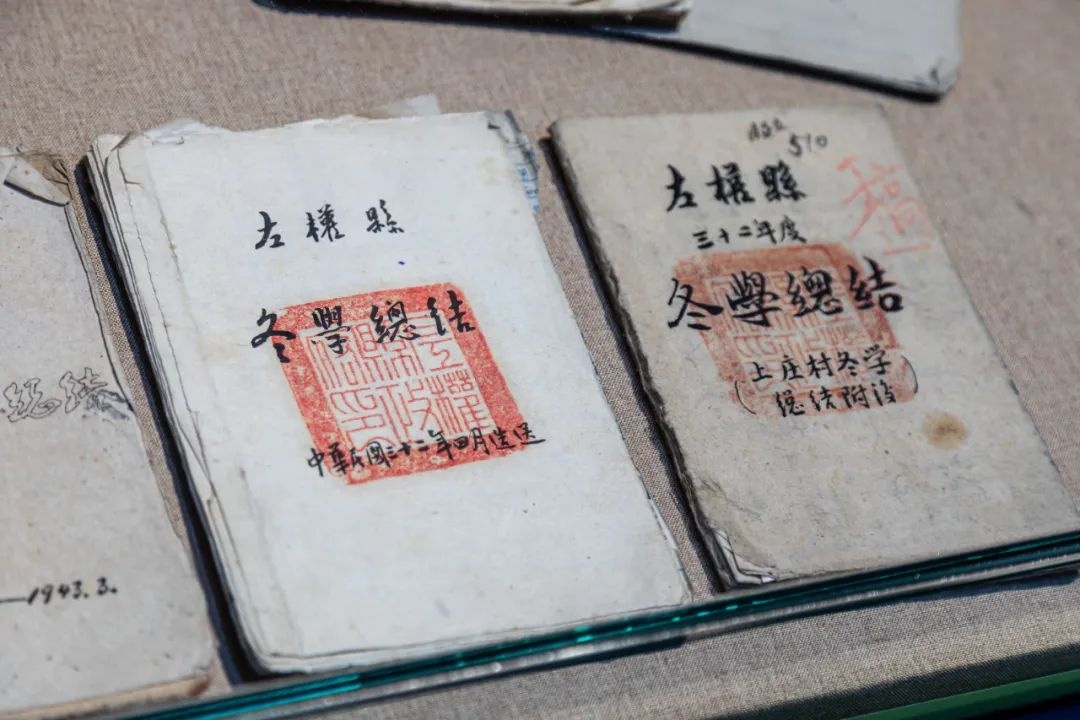 总结
—1943.3.
左權縣
冬學總結
中華民國三十二年四月造送
510
左權縣
三十二年度
冬學總結
(上庄村冬学
总结附後)